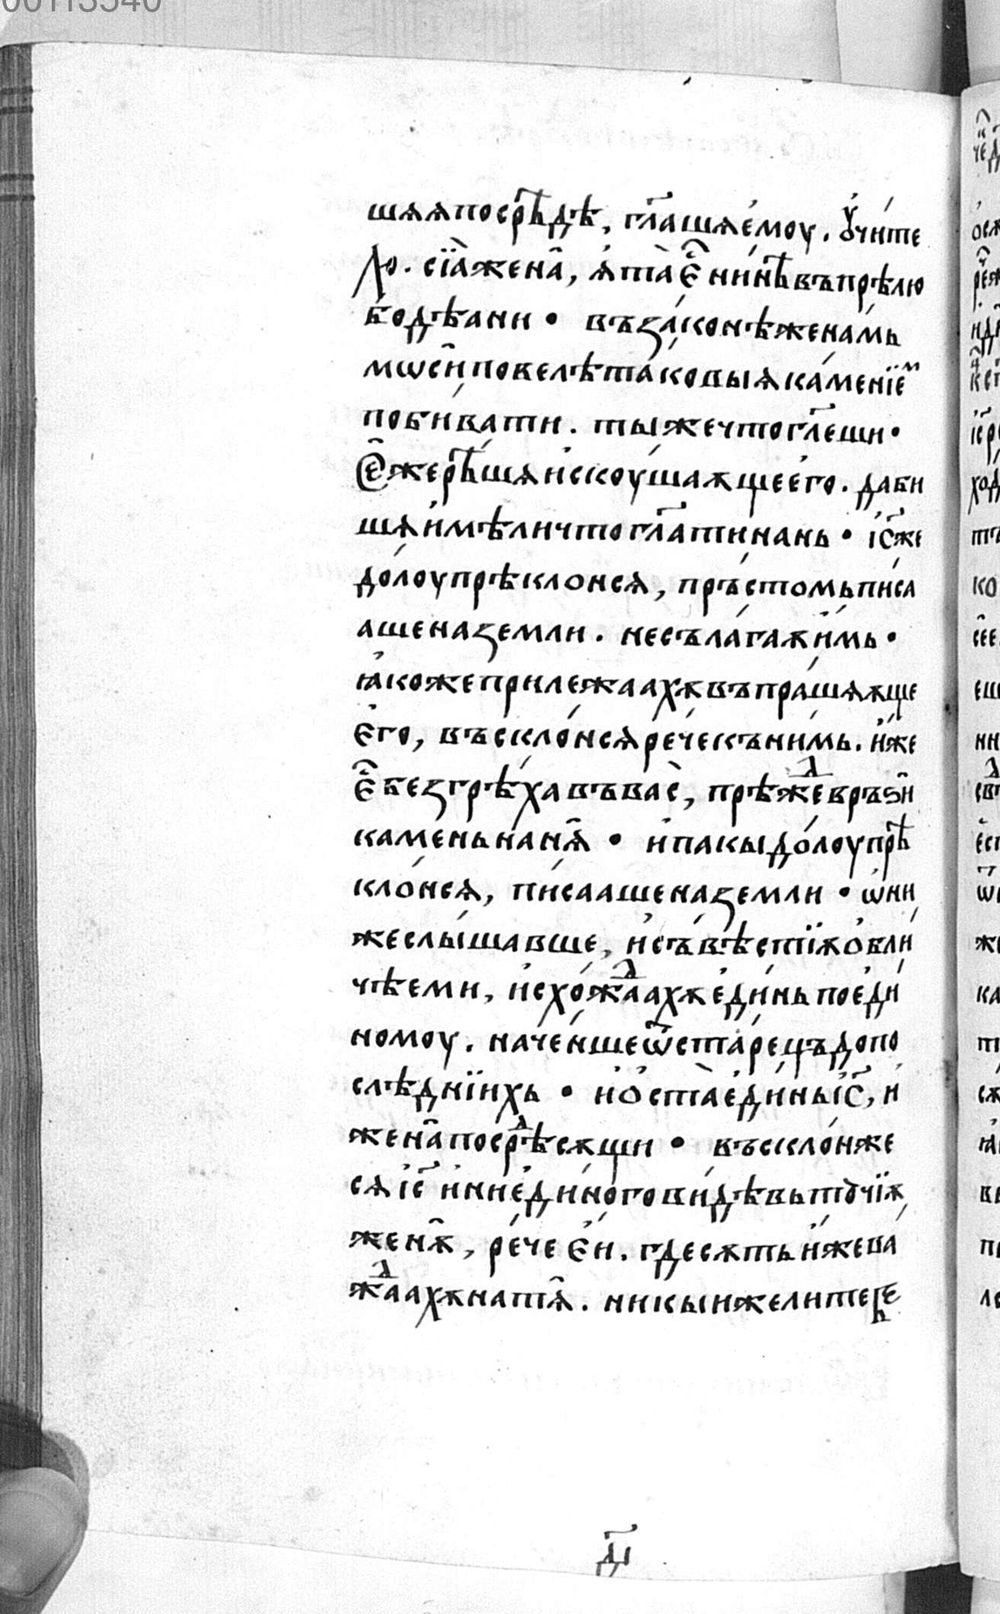 00113540
шѧѧпосрѣ́дѣ, гл҃ашѧе́моу. оу҆чи́те
лю. сїѧ̀жена̑, ꙗ҆та̀є҆ нинꙗвъпрѣлю
бодѣани • въза́конѣжена́мь
мѡсі́иповелѣтаковыѧка́менїемъ
побива́ти. ты́жечтогл҃еши •
се́жерѣ́шѧи҆скоуша́ѫщеего. даби
шѧи҆мѣличтогл҃атинань • і҆с҃же
до́лоупрѣклонсѧ, пръстомьписа
ашеназемли. несълагаѫи҆мь •
ꙗ҆́кожеприлежаахѫвъпраша́ѫще
є҆го, въсклонсѧре́чекъни́мь. и҆́же
є҆безгрѣ́хавъва̀с, прѣжⷣевръѕи
каменьнанѧ̑ • и҆пакыдо́лоупрѣ
клонсѧ, писаашеназемли • ѡ҆ни́
жеслышавше, и҆съвѣстїѫо҆бли
чѣеми, и҆схожⷣаахѫе҆диньпое҆ди
номоу. наче́ншеѿста́рецъдопо
слѣднїихь • и҆ѡ҆ста̀е҆ди́ньі҆с҃, и҆
жена̑посрⷣѣсѫщи • въсклонже
сѧі҆с҃ и҆ниеди́ногови́дѣвьто́чїѫ
женѫ̑, ре́чеє҆и. гдесѫтьи҆́жева
жⷣаахѫнатѧ̑. никыижелитебе
д҃і